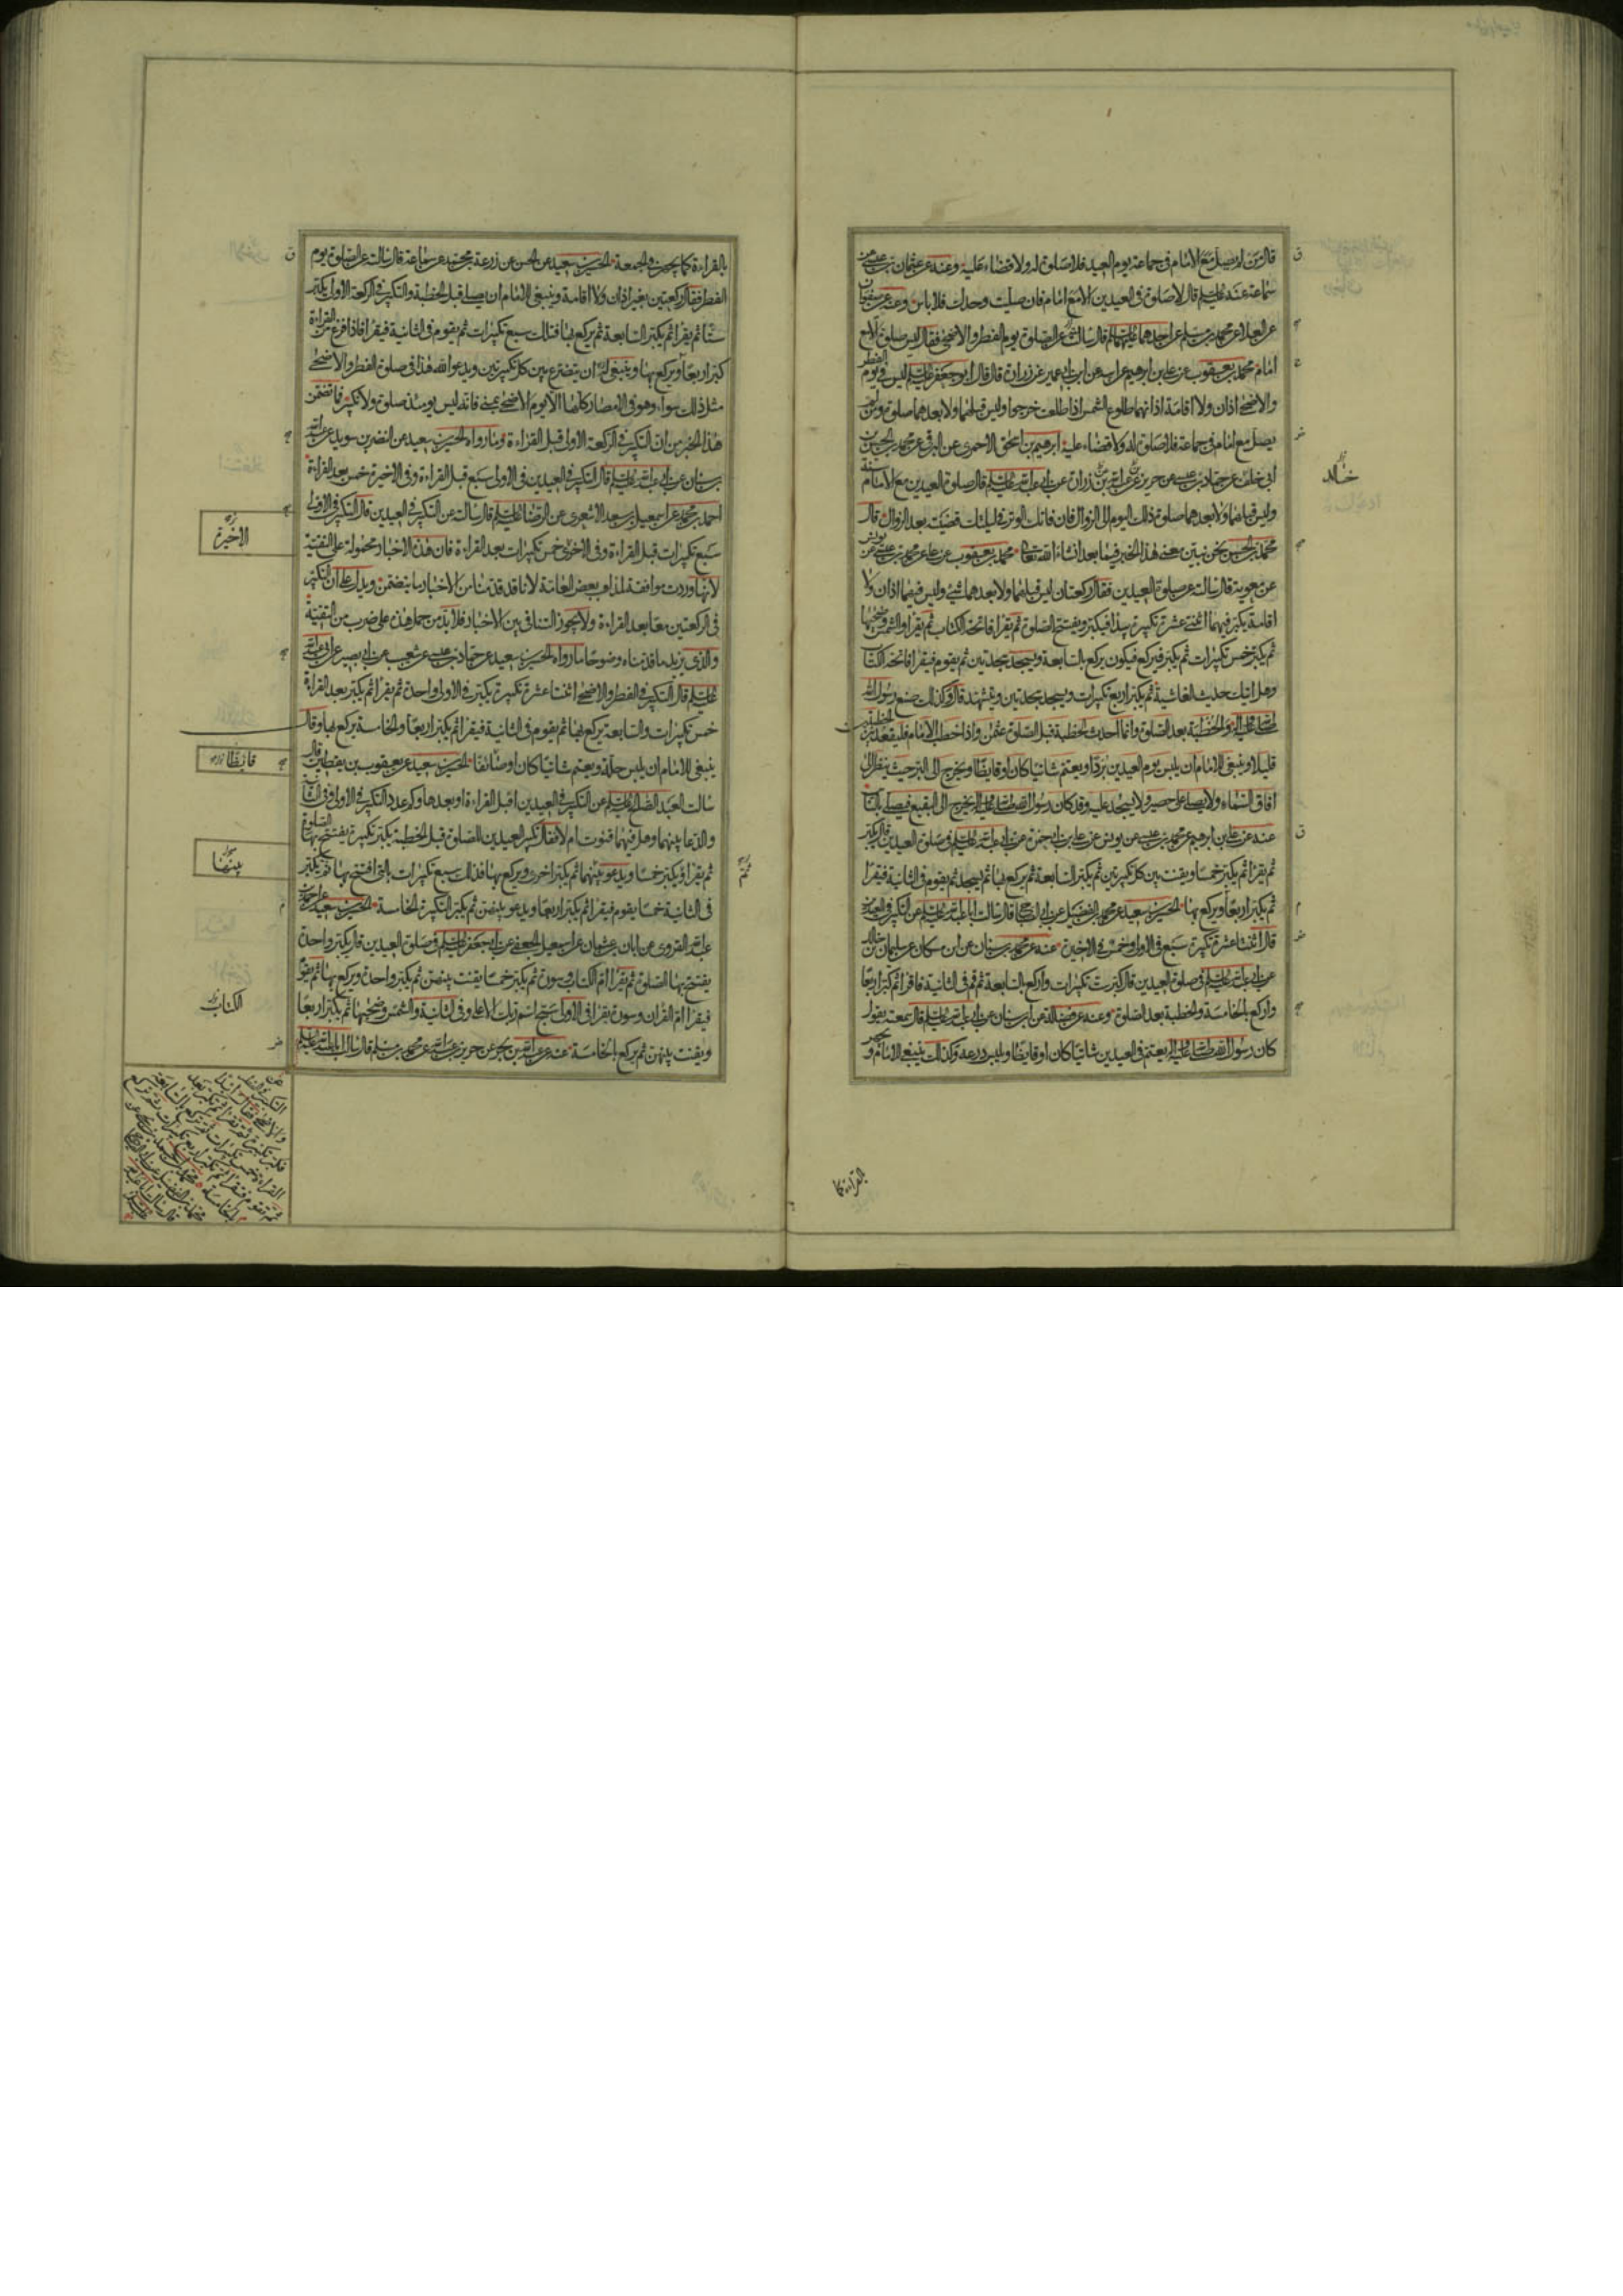 قال من لم يصل مع الامام فى جماعة يوم العيد فلا صلوة له ولا قضاء عليه وعنه عن عثمان بن عيسى عن
سماعة عن ابى عبد الله عليه السلم قال لا صلوة فى العيدين الا مع امام فان صليت وحدك فلا باس وعنه عن صفوان
عن العلا عن محمد بن مسلم عن احدهما عليهما السلم قال سالته عن الصلوة يوم الفطر والاضحى فقال ليس صلوة الا مع
امام محمد بن يعقوب عن على بن ابرهيم عن ابيه عن ابن ابى عمير عن زرارة قال قال ابو جعفر عليه السلم ليس فى يوم الفطر
والاضحى اذان ولا اقامة اذانهما طلوع الشمس اذا طلعت خرجوا وليس قبلهما ولا بعدهما صلوة ومن لم
يصل مع امام فى جماعة فلا صلوة له ولا قضاء عليه ابرهيم بن اسحق الاحمرى عن البرقى عن محمد بن الحسن بن
ابى خلف عن حماد بن عيسى عن حريز عن زرارة عن ابى عبد الله عليه السلم قال صلوة العيدين مع الامام سنة
وليس قبلهما ولا بعدهما صلوة ذلك اليوم الى الزوال فان فاتك الوتر فى ليلتك قضيته بعد الزوال قال
محمد بن الحسن نحن نبين معنى هذا الخبر فيما بعد انشاء الله تعالى محمد بن يعقوب عن على عن محمد بن عيسى عن يونس
عن معوية قال سالته عن صلوة العيدين فقال ركعتان ليس قبلهما ولا بعدهما شئ وليس فيهما اذان ولا
اقامة يكبر فيهما اثنتى عشرة تكبيرة يبدا فيكبر ويفتتح الصلوة ثم يقرا فاتحة الكتاب ثم يقرا والشمس وضحيها
ثم يكبر خمس تكبيرات ثم يكبر فيركع فيكون يركع بالسابعة ويسجد سجدتين ثم يقوم فيقرا فاتحة الكتاب
وهل اتيك حديث الغاشية ثم يكبر اربع تكبيرات ويسجد سجدتين ويتشهد قال وكذلك صنع رسول الله
صلى الله عليه واله والخطبة بعد الصلوة وانما احدث الخطبة قبل الصلوة عثمن واذا خطب الامام فليقعد بين الخطبتين
قليلا وينبغى للامام ان يلبس يوم العيدين بردا ويعتم شاتيا كان او قايظا ويخرج الى البر حيث ينظر الى
افاق السماء ولا يصلى على حصير ولا يسجد عليه وقد كان رسول الله صلى الله عليه واله يخرج الى البقيع فيصلى بالناس
عنه عن على بن ابرهيم عن محمد بن عيسى عن يونس عن على بن ابى حمزة عن ابى عبد الله عليه السلم فى صلوة العيدين قال يكبر
ثم يقرا ثم يكبر خمسا ويقنت بين كل تكبيرتين ثم يكبر السابعة ثم يركع بها ثم يسجد ثم يقوم فى الثانية فيقرا
ثم يكبر اربعا ويركع بها الحسين بن سعيد عن محمد بن الفضيل عن ابى الصباح قال سالت ابا عبد الله عليه السلم عن التكبير فى العيدين
قال اثنتا عشرة تكبيرة سبع فى الاولى وخمس فى الاخيرة عنه عن محمد بن سنان عن ابن مسكان عن سليمان بن خالد
عن ابى عبد الله عليه السلم فى صلوة العيدين قال كبر ست تكبيرات واركع بالسابعة ثم قم فى الثانية فاقرا ثم كبر اربعا
واركع بالخامسة والخطبة بعد الصلوة وعنه عن فضالة عن ابن سنان عن ابى عبد الله عليه السلم قال سمعته يقول
كان رسول الله صلى الله عليه واله يعتم فى العيدين شاتيا كان او قايظا ويلبس درعه وكذلك ينبغى للامام ويجهر
خالد
بالقراءة كما
بالقراءة كما يجهر فى الجمعة الحسين بن سعيد عن الحسن عن زرعة بن محمد عن سماعة قال سالته عن الصلوة يوم
الفطر فقال ركعتين بغير اذان ولا اقامة وينبغى للامام ان يصلى قبل الخطبة والتكبير فى الركعة الاولى يكبر
ستا ثم يقرا ثم يكبر السابعة ثم يركع بها فتلك سبع تكبيرات ثم يقوم فى الثانية فيقرا فاذا فرغ من القراءة
كبر اربعا ويركع بها وينبغى له ان يتضرع بين كل تكبيرتين ويدعو الله هذا فى صلوة الفطر والاضحى
مثل ذلك سواء وهو فى الامصار كلها الا يوم الاضحى بمنى فانه ليس يومئذ صلوة ولا تكبير فما تضمن
هذا الخبر من ان التكبير فى الركعة الاولى قبل القراءة وما رواه الحسين بن سعيد عن النضر بن سويد عن عبد الله
بن سنان عن ابى عبد الله عليه السلم قال التكبير فى العيدين فى الاولى سبع قبل القراءة وفى الاخيرة خمس بعد القراءة
احمد بن محمد عن اسمعيل بن سعد الاشعرى عن الرضا عليه السلم قال سالته عن التكبير فى العيدين قال التكبير فى الاولى
سبع تكبيرات قبل القراءة وفى الاخرى خمس تكبيرات بعد القراءة فان هذه الاخبار محمولة على التقية
لانها وردت موافقة لمذاهب بعض العامة لانا قد قدمنا من الاخبار ما يتضمن ويدل على ان التكبير
فى الركعتين معا بعد القراءة ولا يجوز التنافى بين الاخبار فلا بد من حمل هذه على ضرب من التقية
والذى يزيد ما قدمناه وضوحا ما رواه الحسين بن سعيد عن حماد بن عيسى عن شعيب عن ابى بصير عن ابى عبد الله
عليه السلم قال التكبير فى الفطر والاضحى اثنتا عشرة تكبيرة يكبر فى الاولى واحدة ثم يقرا ثم يكبر بعد القراءة
خمس تكبيرات والسابعة يركع بها ثم يقوم فى الثانية فيقرا ثم يكبر اربعا والخامسة يركع بها وقال
ينبغى للامام ان يلبس حلة ويعتم شاتيا كان او صائفا الحسين بن سعيد عن يعقوب بن يقطين قال
سالت العبد الصالح عليه السلم عن التكبير فى العيدين اقبل القراءة او بعدها وكم عدد التكبير فى الاولى وفى الثانية
والدعا بينهما وهل فيهما قنوت ام لا فقال تكبير العيدين للصلوة قبل الخطبة يكبر تكبيرة يفتتح بها الصلوة
ثم يقرا ويكبر خمسا ويدعو بينهما ثم يكبر اخرى ويركع بها فذلك سبع تكبيرات بالتى افتتح بها ثم يكبر
فى الثانية خمسا يقوم فيقرا ثم يكبر اربعا ويدعو بينهن ثم يكبر التكبيرة الخامسة الحسين بن سعيد عن احمد بن
عبد الله القروى عن ابان بن عثمان عن اسمعيل الجعفى عن ابى جعفر عليه السلم فى صلوة العيدين قال يكبر واحدة
يفتتح بها الصلوة ثم يقرا ام الكتاب وسورة ثم يكبر خمسا يقنت بينهن ثم يكبر واحدة ويركع بها ثم يقوم
فيقرا ام القران وسورة يقرا فى الاولى سبح اسم ربك الاعلى وفى الثانية والشمس وضحيها ثم يكبر اربعا
ويقنت بينهن ثم يركع بالخامسة عنه عن عبد الله بن بحر عن حريز بن عبد الله عن محمد بن مسلم قال سالت ابا عبد الله عليه السلم
الاخيرة
قايظا
بينهما
الكتاب
ثم